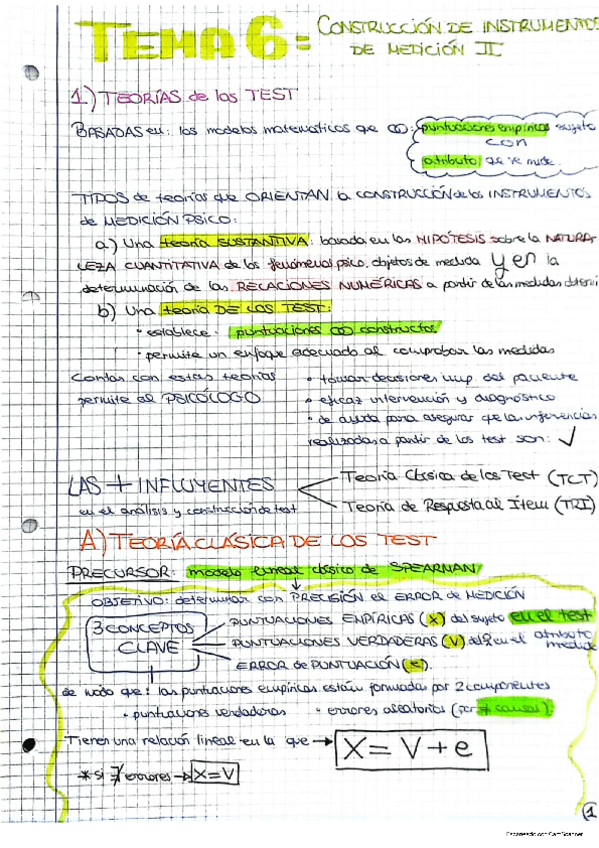 TEMA 6: CONSTRUCCIÓN DE INSTRUMENTOS
DE MEDICIÓN II
1) TEORÍAS de los TEST
BASADAS en: los modelos matemáticos que ∞: puntuaciones empíricas sujeto
con
atributo que se mide.
TIPOS de teorías que ORIENTAN la CONSTRUCCIÓN de los INSTRUMENTOS
de MEDICIÓN PSICO:
a) Una teoría SUSTANTIVA: basada en las HIPÓTESIS sobre la NATURA-
LEZA CUANTITATIVA de los fenómenos psico. objetos de medida y en la
determinación de las RELACIONES NUMÉRICAS a partir de las medidas obteni
b) Una teoría DE LOS TEST:
• establece: puntuaciones ∞ constructos
• permite un enfoque adecuado al comprobar las medidas
Contar con estas teorías
permite al PSICÓLOGO
• tomar decisiones imp. del paciente
• eficaz intervención y diagnóstico
• de ayuda para asegurar que las inferencias
realizadas a partir de los test son: ✓
LAS + INFLUYENTES
en el análisis y construcción de test
Teoría Clásica de los Test (TCT)
Teoría de Respuesta al Ítem (TRI)
A) TEORÍA CLÁSICA DE LOS TEST
PRECURSOR: modelo lineal clásico de SPEARMAN
OBJETIVO: determinar con PRECISIÓN el ERROR de MEDICIÓN
3 CONCEPTOS
CLAVE
PUNTUACIONES EMPÍRICAS (X) del sujeto en el test
PUNTUACIONES VERDADERAS (V) del en el atributo
medido
ERROR de PUNTUACIÓN (e).
de modo que: las puntuaciones empíricas están formadas por 2 componentes
• puntuaciones verdaderas • errores aleatorios (por ≠ causas)
Tienen una relación lineal en la que → X = V + e
* si ∄ errores → X = V
1
Escaneado con CamScanner